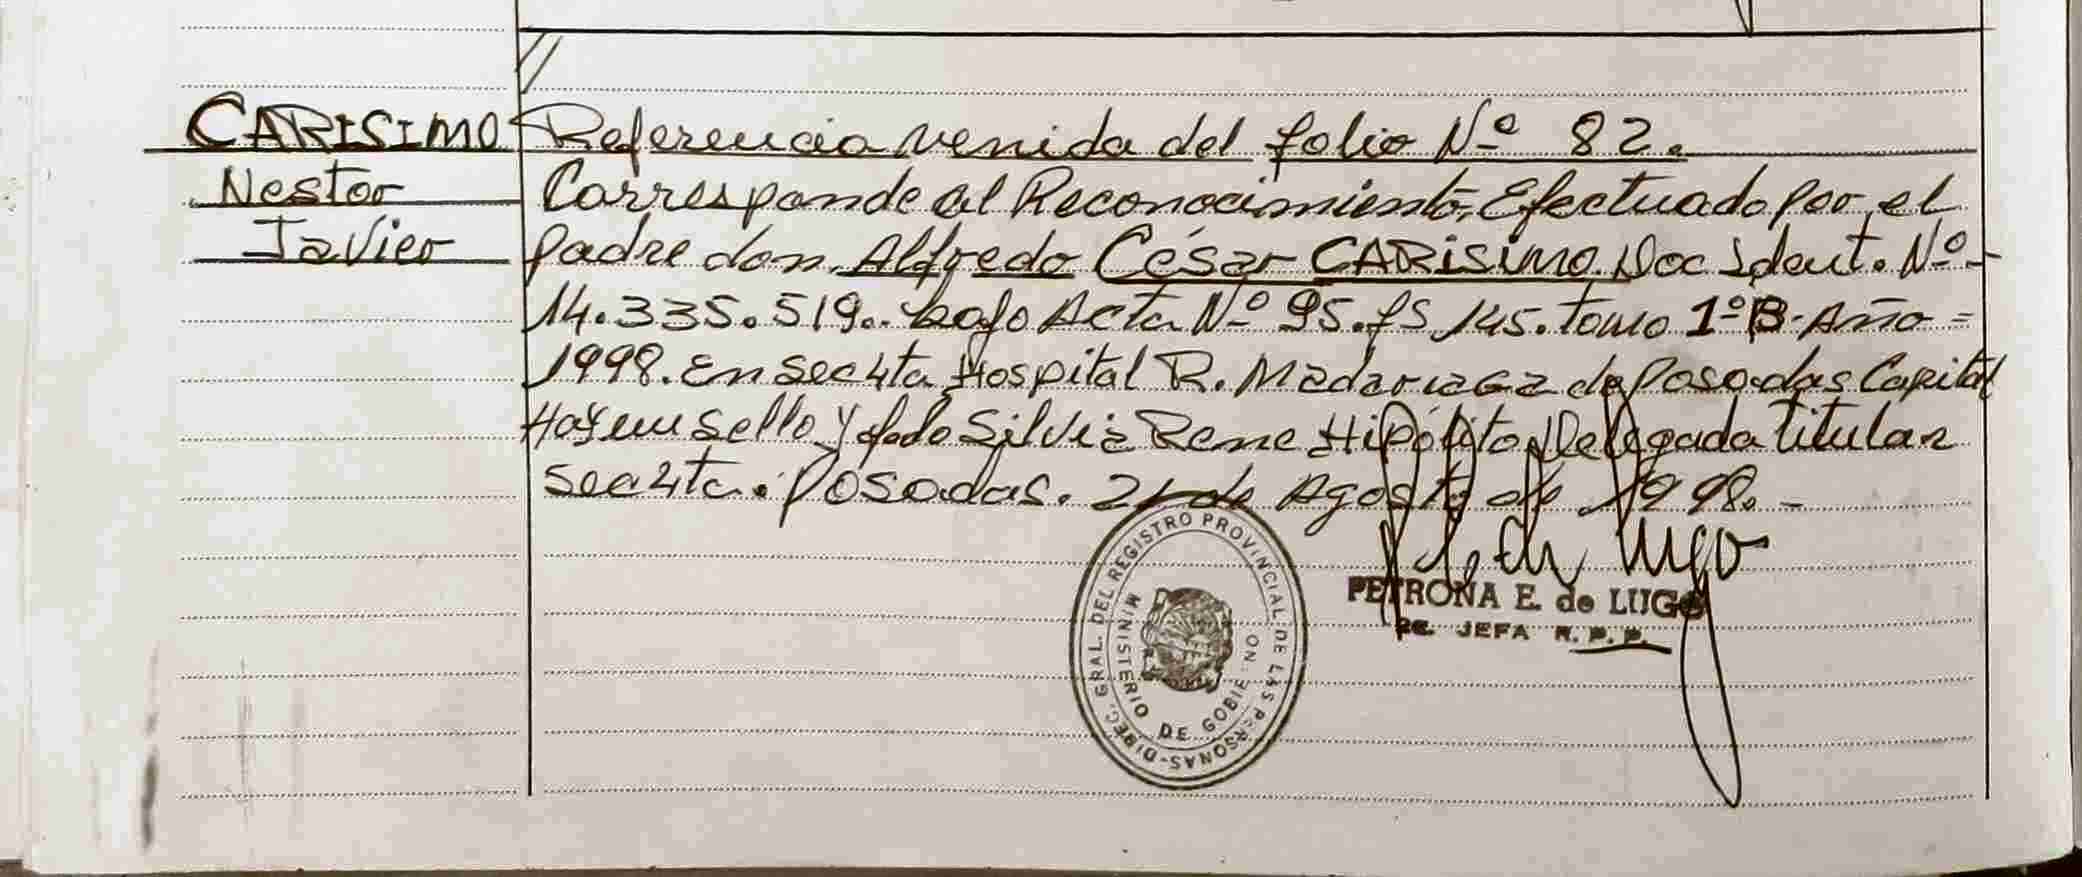 CARISIMO
Nestor
Javier
Referencia venida del folio Nº 82.
Corresponde al Reconocimiento, Efectuado por el
padre don. Alfredo César CARISIMO. Doc Ident. Nº-
14.335.519.. bajo Acta Nº 95. fs 145. tomo 1º B. Año =
1998. En sec 4ta Hospital R. Madariaga de Posadas Capital
Hay un sello y fdo Silvia Rene Hipólito Delegada titular
sec 4ta. Posadas. 21 de Agosto de 1998. -
PETRONA E. de LUGO
JEFA R. P. P.
DIREC. GRAL. DEL REGISTRO PROVINCIAL DE LAS PERSONAS-
MINISTERIO DE GOBIERNO